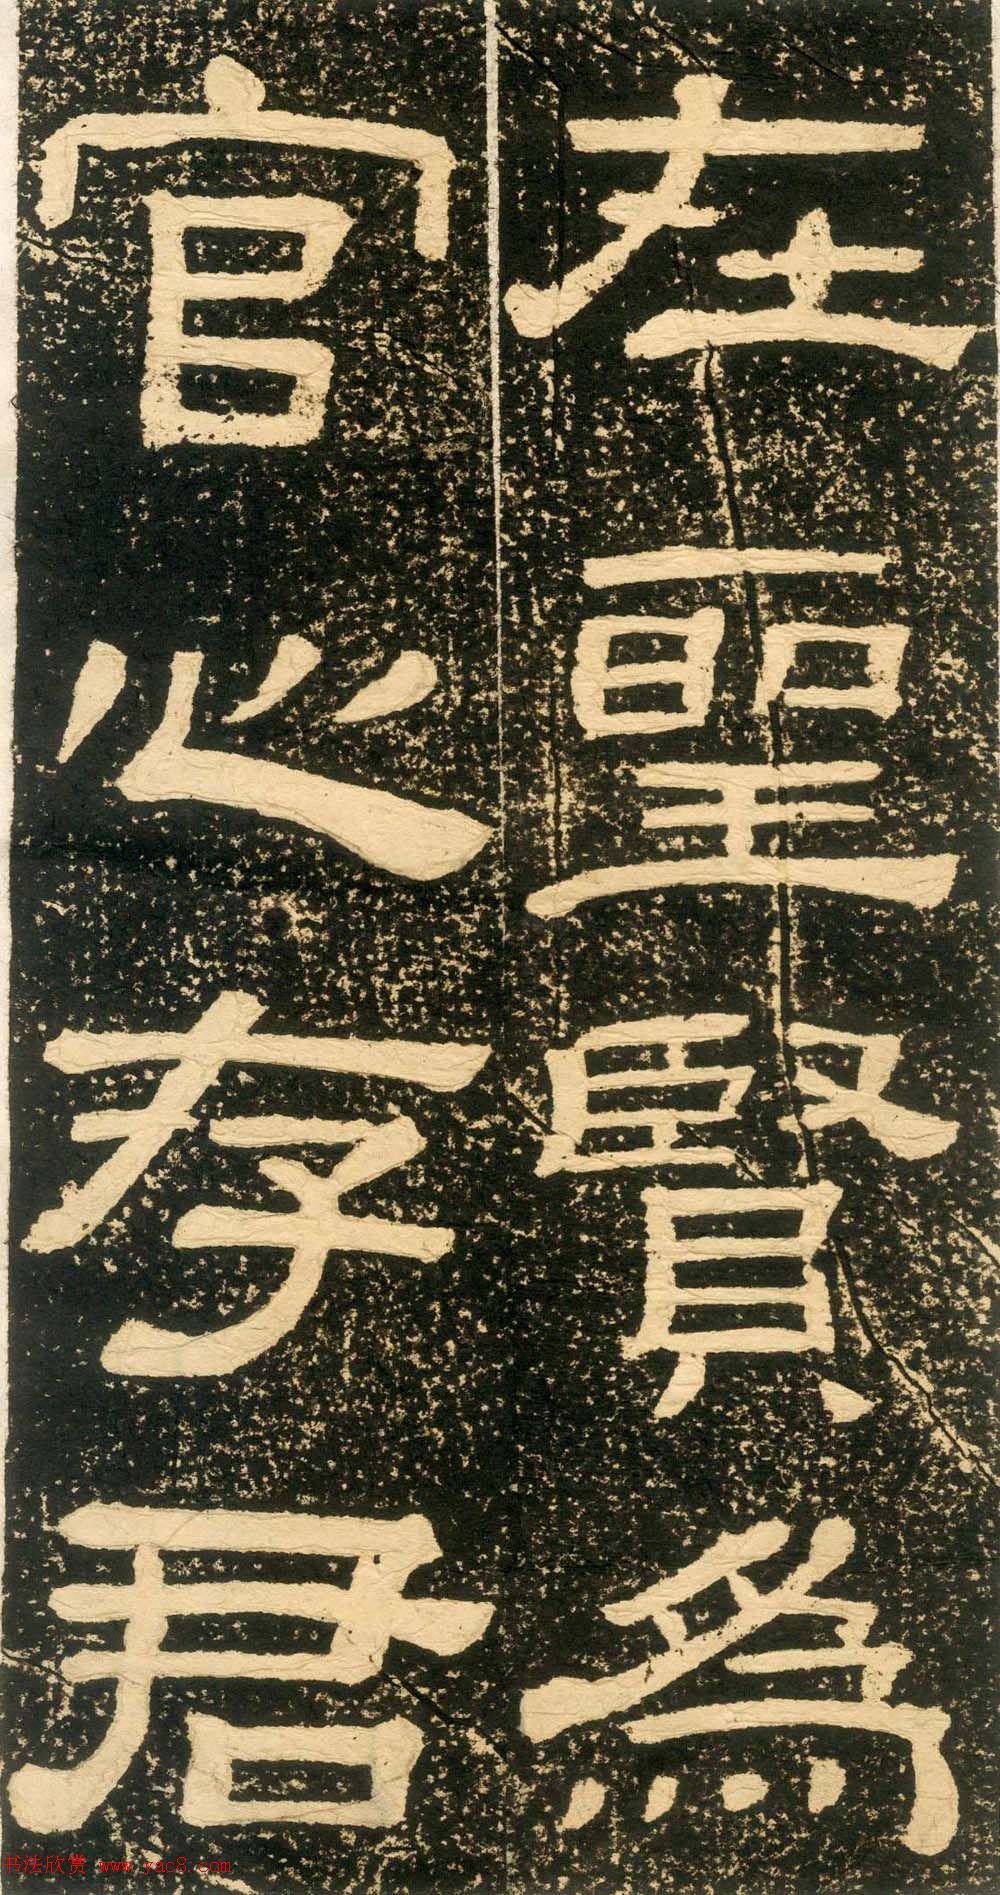 在聖賢為
官心存君
书法欣赏 www.yac8.com